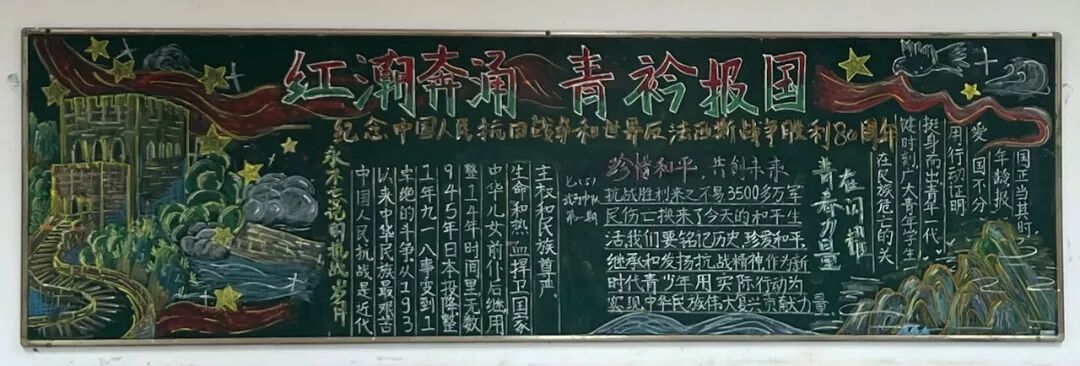 红潮奔涌 青衿报国
纪念中国人民抗日战争和世界反法西斯战争胜利80周年
永不忘记的抗战岁月
中国人民抗战是近代
以来中华民族最艰苦
卓绝的斗争,从193
1年九一八事变到1
945年日本投降整
整14年时间里无数
中华儿女前仆后继用
生命和热血捍卫国家
主权和民族尊严.
七(5)
第一期
珍惜和平,共创未来
抗战胜利来之不易3500多万军
民伤亡换来了今天的和平生
活,我们要铭记历史,珍爱和平,
继承和发扬抗战精神作为新
时代青少年用实际行动为
实现中华民族伟大复兴贡献力量.
青春力量
在闪耀
在民族危亡的关
键时刻,广大青年学生
挺身而出青年一代
用行动证明
爱国不分
年龄报
国正当其时.